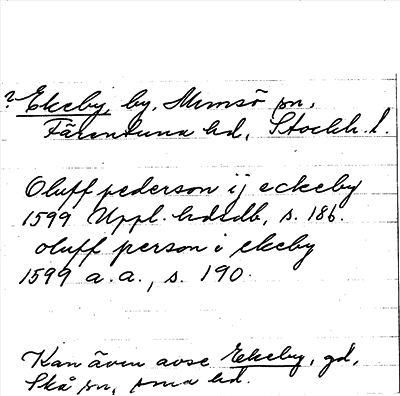 ? Ekeby, by, Munsö sn,
Färentuna hd, Stockh. l.
Oluff pederson ij eckeby
1599 Uppl. hdsdb, s. 186.
oluff person i ekeby
1599 a. a., s. 190.
Kan även avse Ekeby, gd,
Skå sn, sma hd.